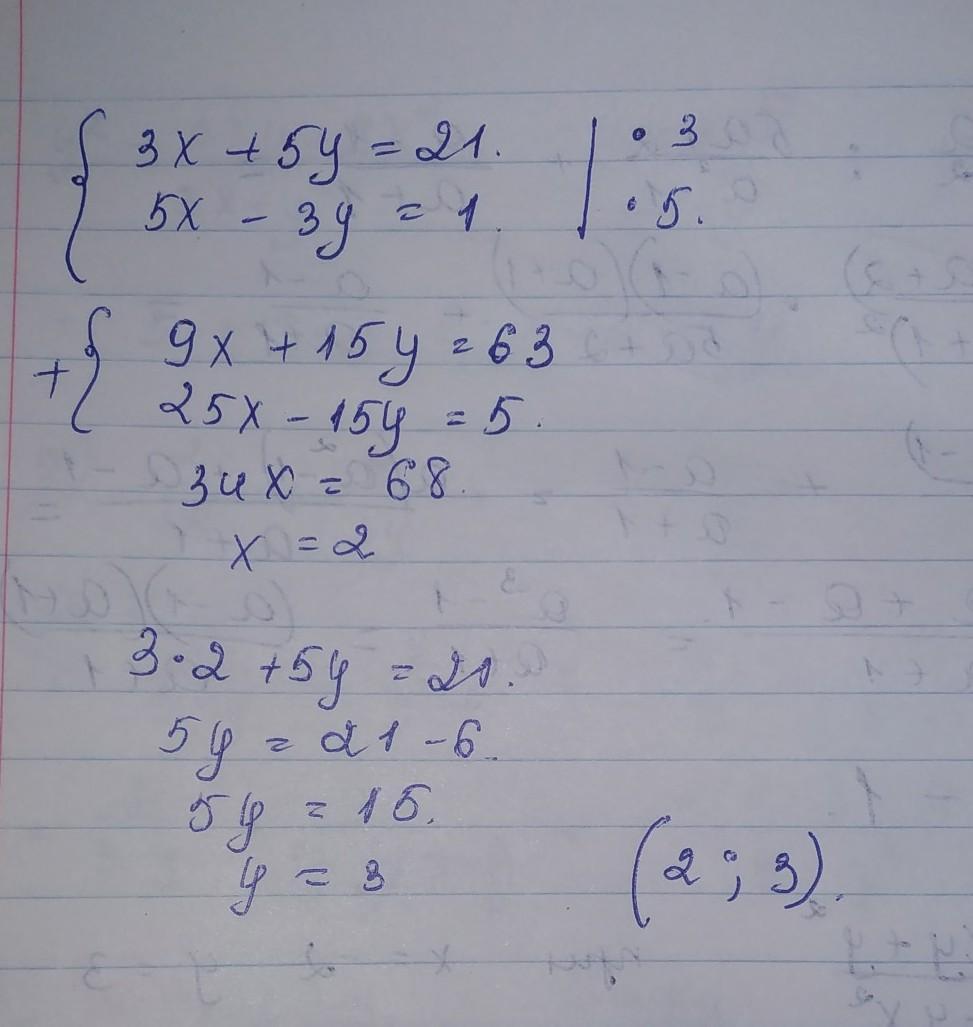 { 3x + 5y = 21. | · 3
5x - 3y = 1. | · 5.
+ { 9x + 15y = 63
25x - 15y = 5.
34x = 68.
x = 2
3·2 + 5y = 21.
5y = 21 - 6.
5y = 15.
y = 3
(2 ; 3).